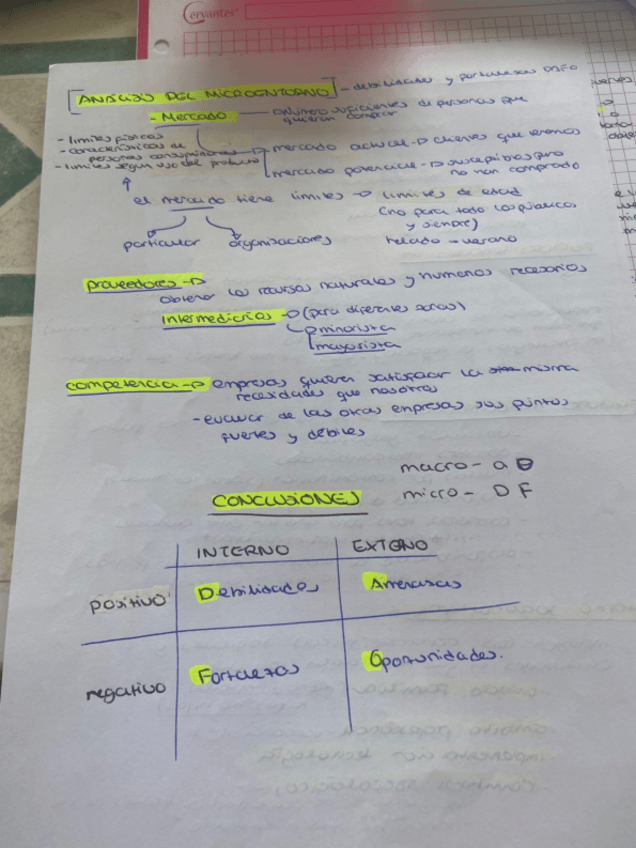 Cervantes
[ANÁLISIS DEL MICROENTORNO] - debilidades y fortalezas DAFO
- Mercado - número suficientes de personas que quieran comprar
- limites físicos
- características de personas consumidores
- limites según uso del producto
mercado actual → clientes que tenemos
mercado potencial → susceptibles pero no han comprado
el mercado tiene limites → limites de edad
(no para todo los públicos, y siempre)
particular organizaciones helado - verano
proveedores →
obtener los recursos naturales y humanos necesarios
Intermediarios → (para diferentes zonas)
minorista
mayorista
competencia → empresas quieren satisfacer la misma
necesidades que nosotros
- evaluar de las otras empresas sus puntos
fuertes y débiles
macro - a O
micro - D F
CONCLUSIONES
INTERNO EXTERNO
positivo Debilidades Amenazas
negativo Fortalezas Oportunidades.